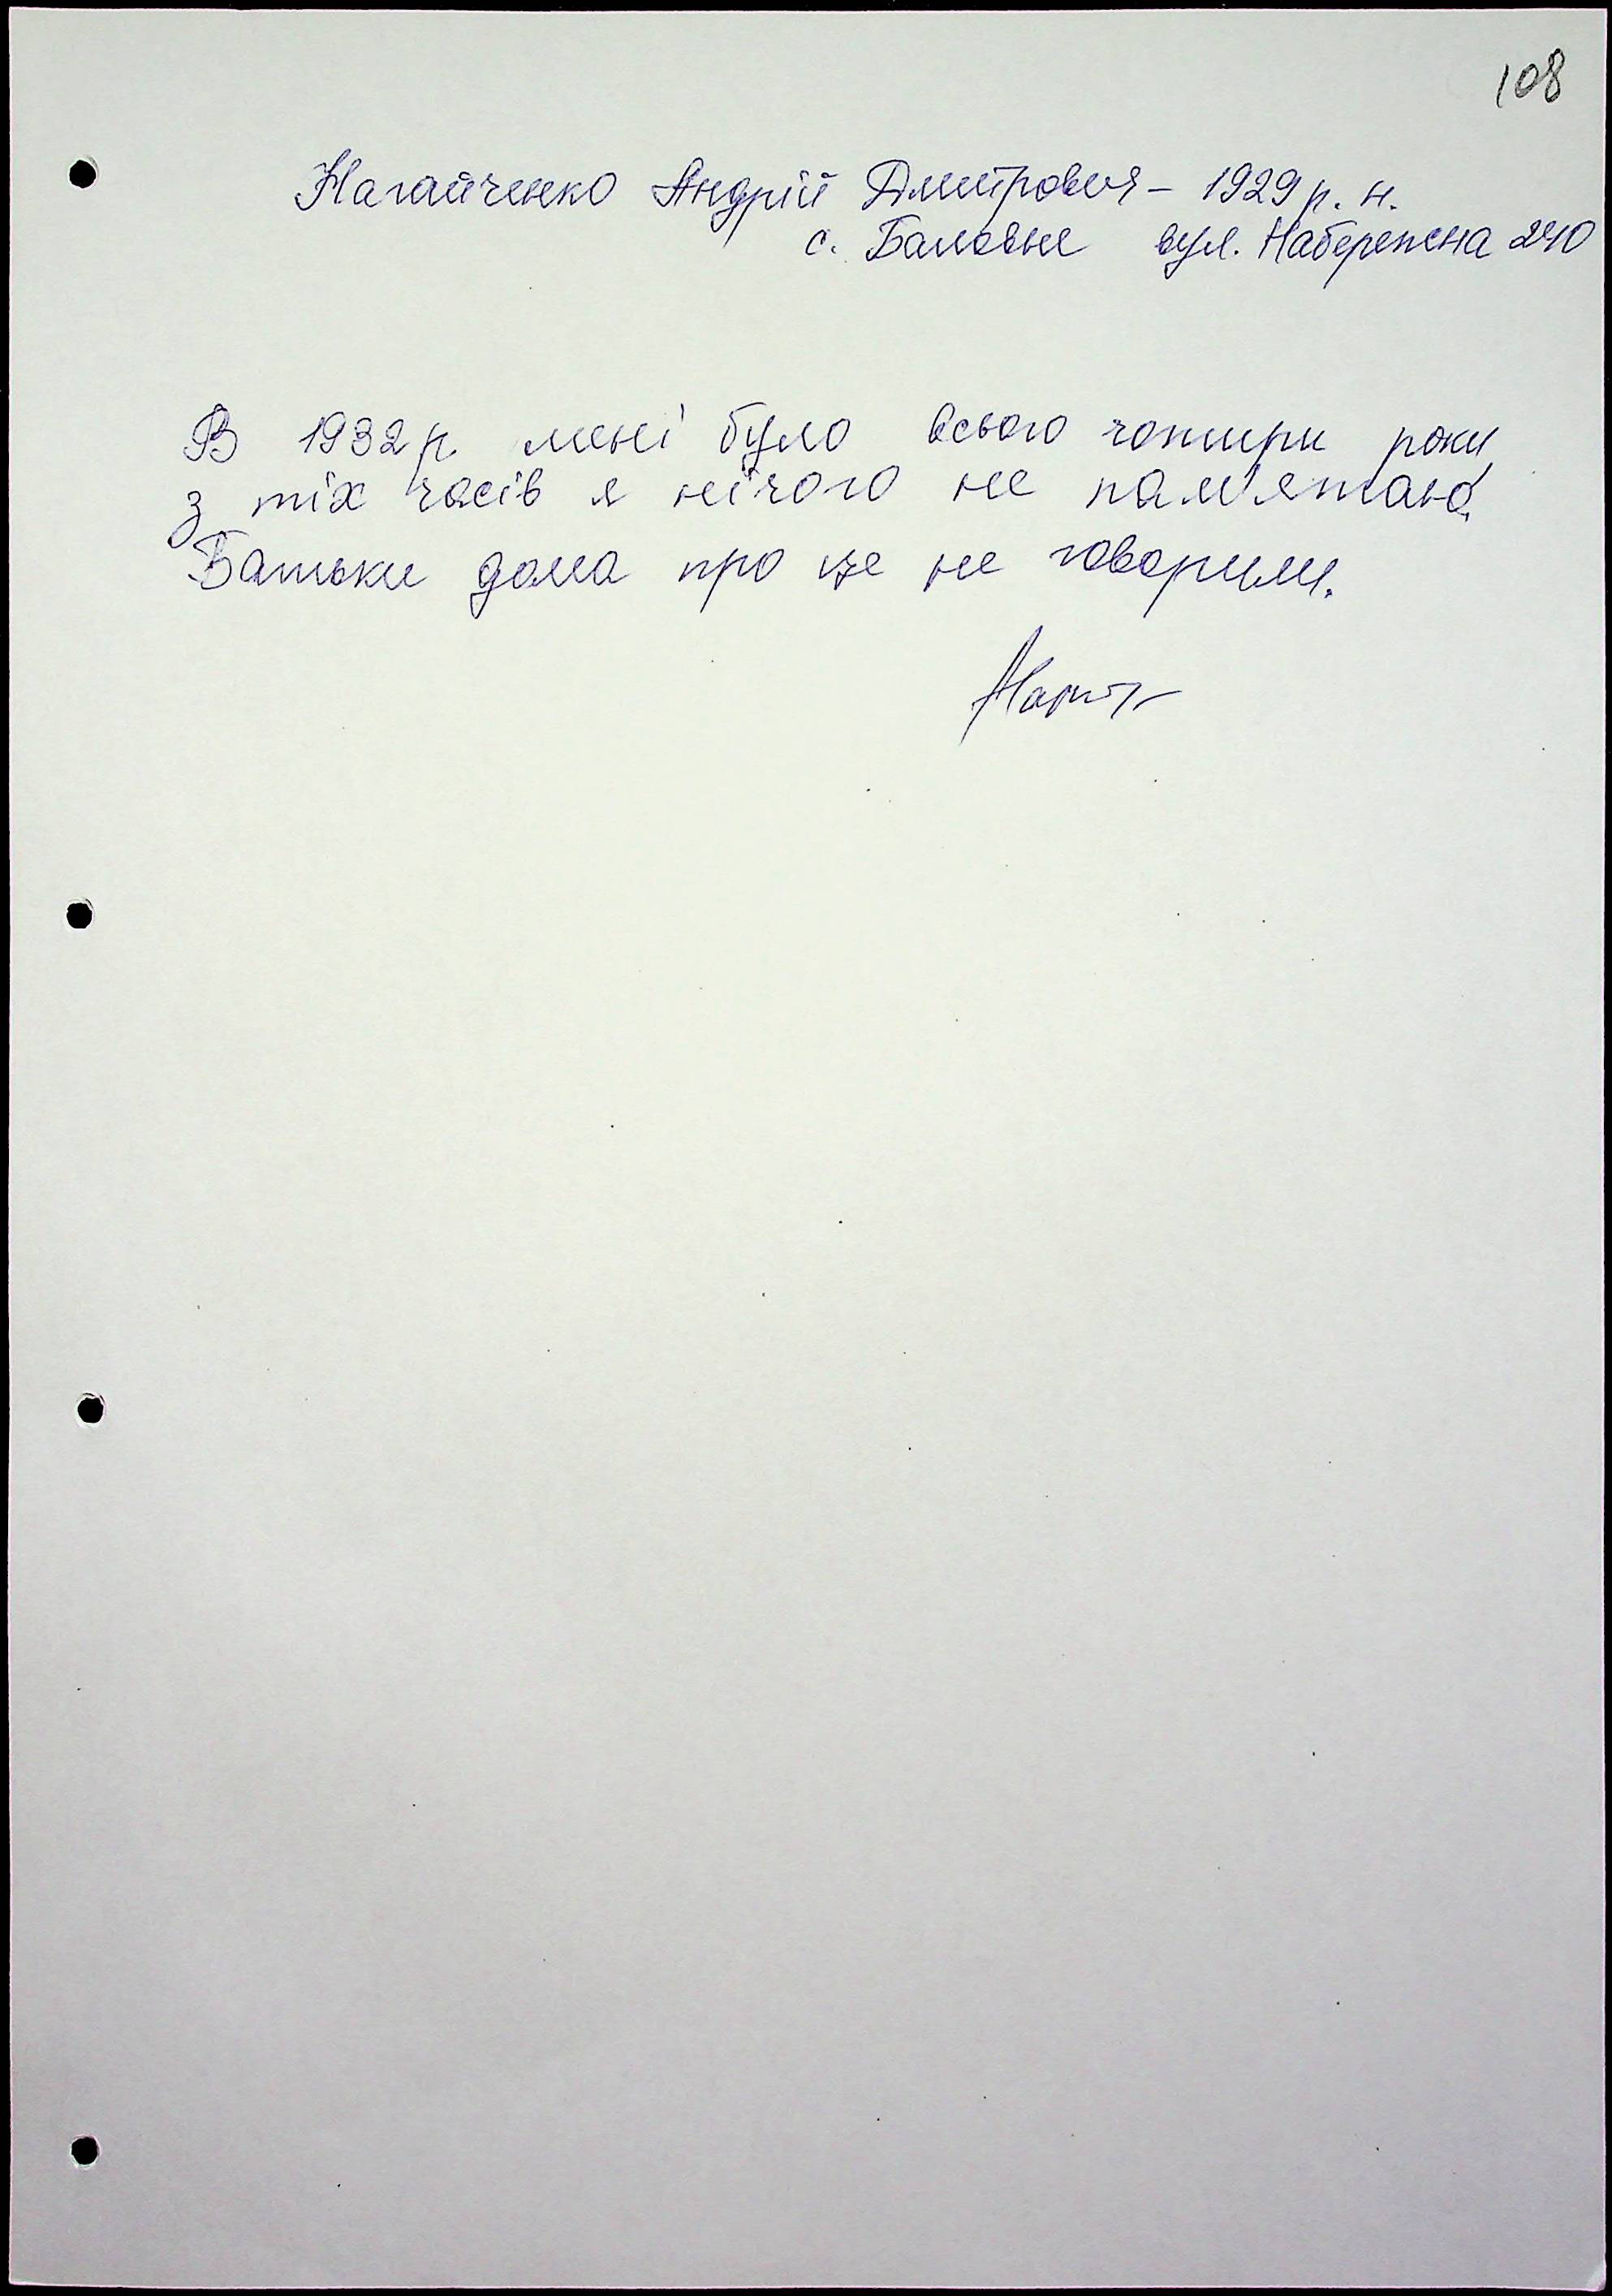 108
Нагайченко Андрій Дмитрович – 1929 р. н.
с. Баловне вул. Набережна 240
В 1932 р. мені було всього чотири роки
з тіх часів я нічого не пам'ятаю.
Батьки дома про це не говорили.